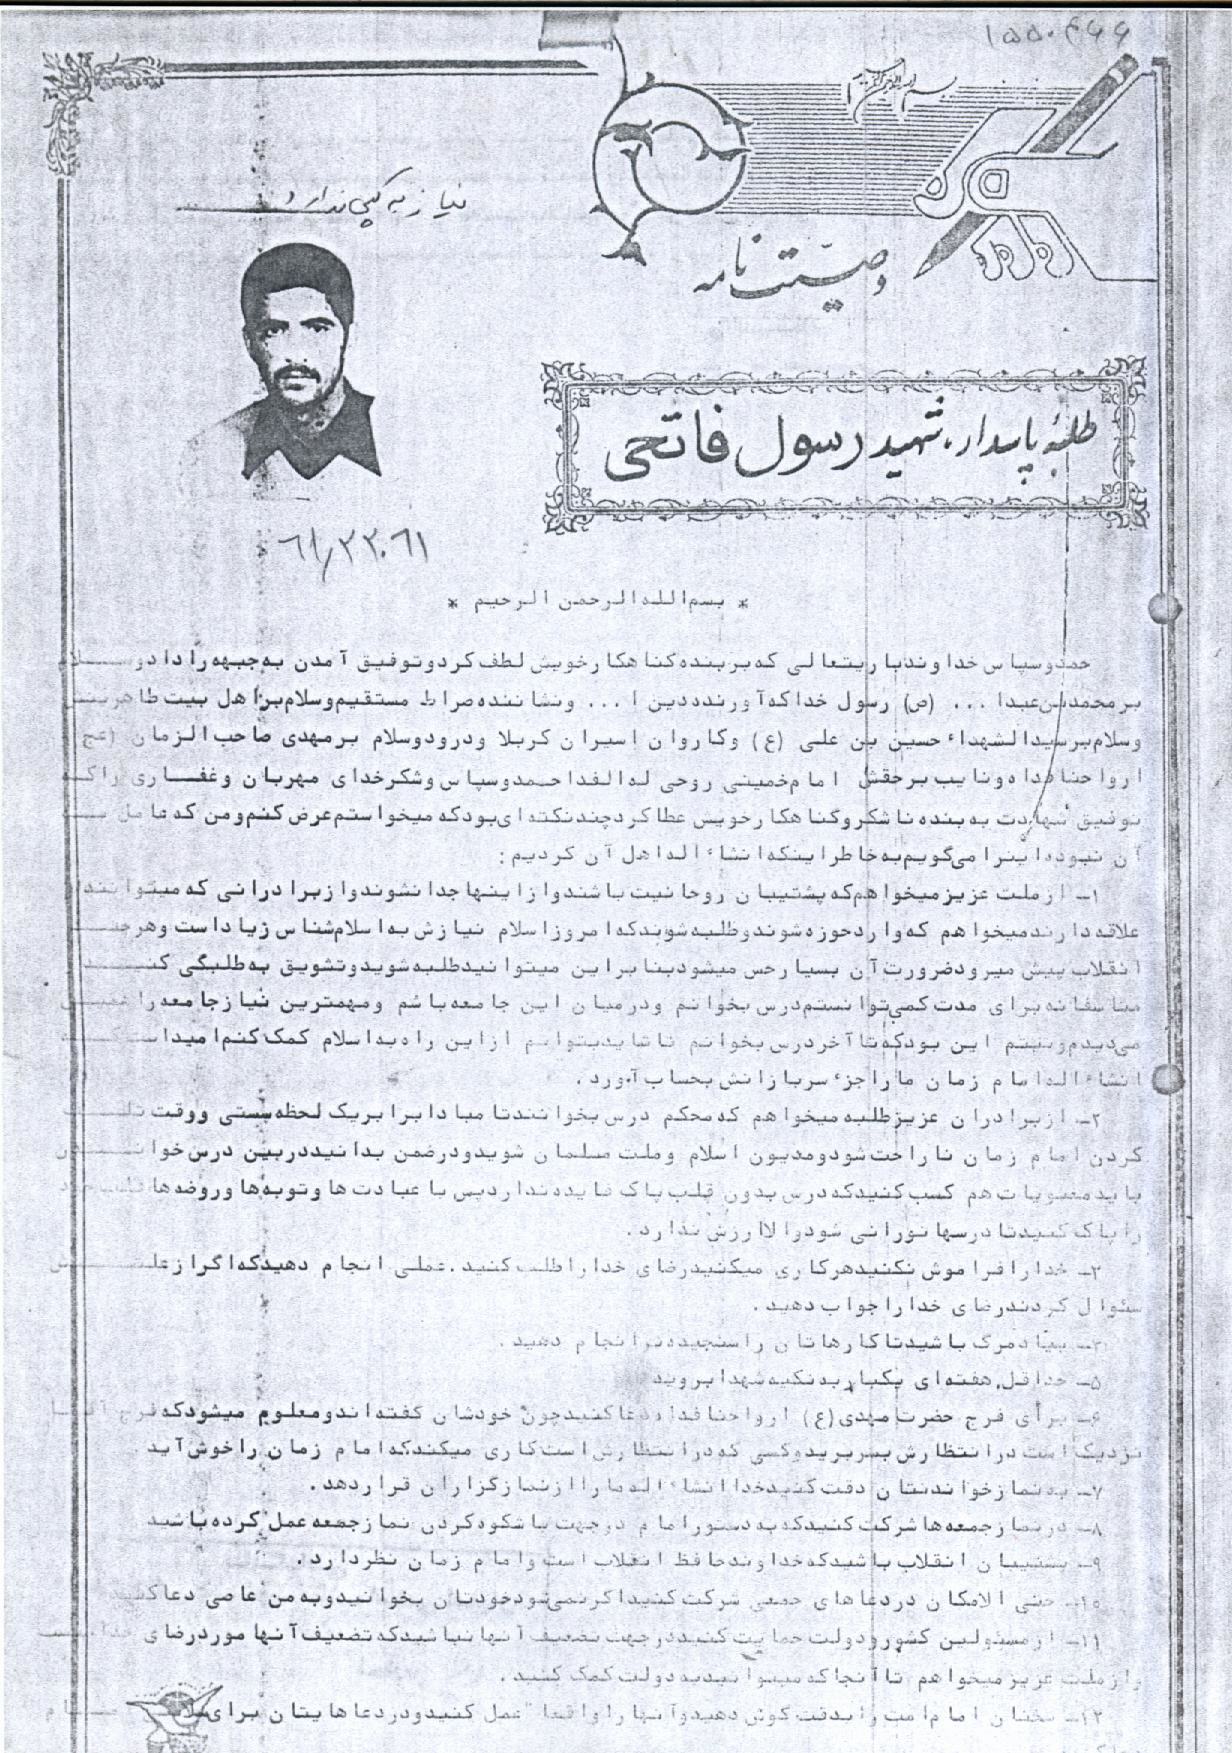 ۱۵۵۰۴۶۶
بسم الله الرحمن الرحیم
نیاز به کپی ندارد
وصیّت نامه
طلبهٔ پاسدار، شهید رسول فاتحی
* بسم الله الرحمن الرحیم *
حمد و سپاس خداوند باریتعالی که بر بنده گناهکار خویش لطف کرد و توفیق آمدن به جبهه را داد و ســلام
بر محمد بن عبدا ... (ص) رسول خدا که آورنده دین ا ... و نشاننده صراط مستقیم و سلام بر اهل بیت طاهرینش
وسلام بر سید الشهداء حسین بن علی (ع) و کاروان اسیران کربلا و درود و سلام بر مهدی صاحب الزمان (عج)
ارواحنا فداه و نایب بر حقش امام خمینی روحی له الفدا حمد و سپاس و شکر خدای مهربان و غفــاری را کــه
توفیق شهادت به بنده ناشکر و گناهکار خویس عطا کرد چند نکته ای بود که میخواستم عرض کنم و من که عامل بــه
آن نبوده اینرا می گویم به خاطر اینکه انشاء الله اهل آن کردیم :
۱- از ملت عزیز میخواهم که پشتیبان روحانیت باشند و از اینها جدا نشوند و از برادرانی که میتوانند
علاقه دارند میخواهم که وارد حوزه شوند و طلبه شوید که امروز اسلام نیازش به اسلام شناس زیاد است و هر چــه
انقلاب پیش میرود ضرورت آن بسیار حس میشود بنابر این میتوانید طلبه شوید و تشویق به طلبگی کنیــد
متاسفانه برای مدت کمی توانستم درس بخوانم و در میان این جامعه باشم و مهمترین نیاز جامعه را
می دیدم و نیتم این بود که تا آخر درس بخوانم تا شاید بتوانم از این راه به اسلام کمک کنم امید است کــه
انشاء الله امام زمان ما را جزء سربازانش بحساب آورد .
۲- از برادران عزیز طلبه میخواهم که محکم درس بخوانند تا مبادا برابر یک لحظه سستی و وقت تلــف
کردن امام زمان ناراحت شود و مدیون اسلام و ملت مسلمان شوید و در ضمن بدانید در بین درس خوانــدن
باید معنویات هم کسب کنید که درس بدون قلب پاک فایده ندارد پس با عبادت ها و توبه ها و روضه ها قلب خود
را پاک کنید تا درسها نورانی شود و الا ارزش ندارد .
۳- خدا را فراموش نکنید هر کاری میکنید رضای خدا را طلب کنید . عملی انجام دهید که اگر از علتــش
سئوال کردند رضای خدا را جواب دهید .
۴- بیاد مرگ باشید تا کارهاتان را سنجیده تر انجام دهید .
۵- حداقل هفته ای یکبار به تکیه شهدا بروید
۶- برای فرج حضرت مهدی (ع) ارواحنا فداه دعا کنید چون خودشان گفته اند و معلوم میشود که فرج آقا
نزدیک است در انتظارش بسر برید و کسی که در انتظارش است کاری میکند که امام زمان را خوش آید
۷- به نماز خواندنتان دقت کنید خدا انشاء الله ما را از نماز گزاران قرار دهد .
۸- در نماز جمعه ها شرکت کنید که به دستور امام در جهت با شکوه کردن نماز جمعه عمل کرده باشید
۹- پشتیبان انقلاب باشید که خداوند حافظ انقلاب است و امام زمان نظر دارد .
۱۰- حتی الامکان در دعاهای جمعی شرکت کنید اگر نمی شود خودتان بخوانید و به من عاصی دعا کنید
۱۱- از مسئولین کشور و دولت حمایت کنید در جهت تضعیف آنها نباشید که تضعیف آنها مورد رضای خدا نیست
و از ملت عزیز میخواهم تا آنجا که میتوانید به دولت کمک کنید .
۱۲- سخنان امام امت را بدقت گوش دهید و آنها را واقعا عمل کنید و در دعاهایتان برای